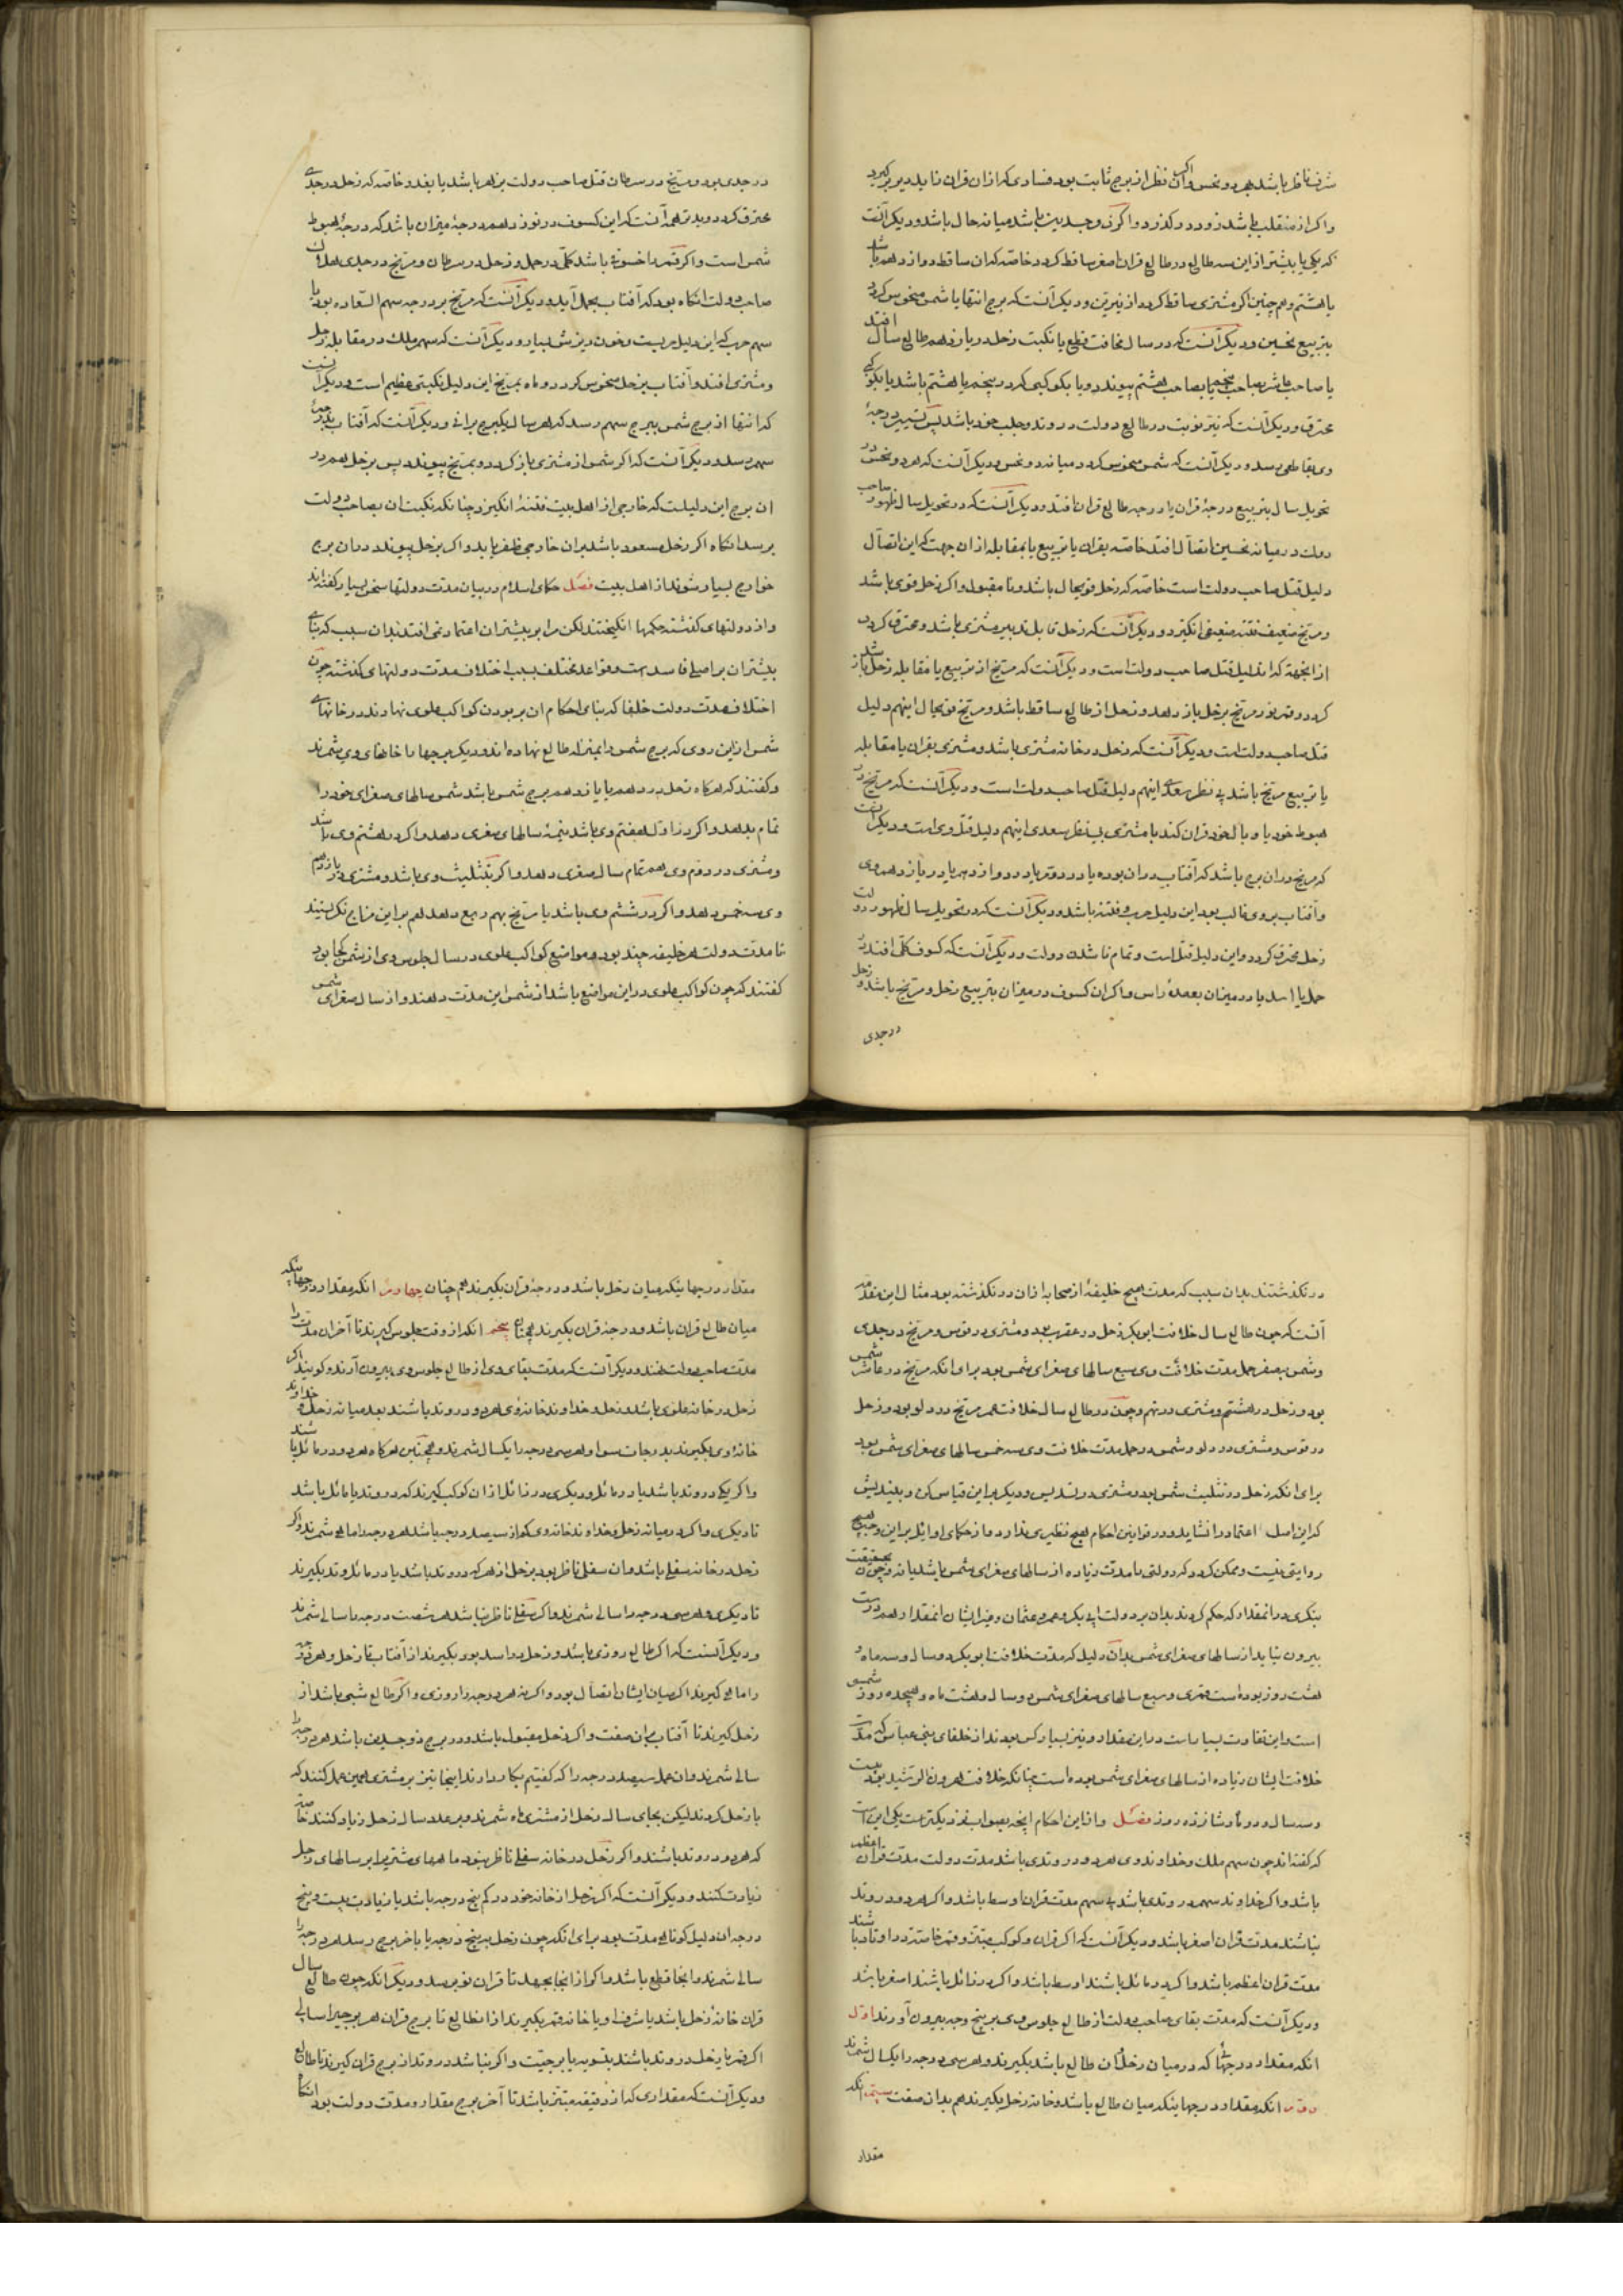 شرف ناظر باشد هر دو نحس واکر آن نظر از برج ثابت بود فسادی که از ان قران زاید دیر برکیرد
واکر از منقلب باشد زود درکذرد واکر ذوجسدین باشد میانه حال باشد ودیکر آنست
که یکی یا بیشتر از این سه طالع در طالع قران اصغر ساقط کردد خاصه که ان ساقط دوازدهم باشد
یا هشتم وهم چنین اکر مشتری ساقط کردد از نیرین ودیکر آنست که برج انتها یا شمس منحوس کردد
بتربیع نحسین ودیکر آنست که در سال مخافت قطع یا نکبت زحل در یازدهم طالع سال افتد
یا صاحب عاشر بصاحب پنجم یا بصاحب هشتم پیوندد ویا بکوکبی کردد پنجم یا هشتم باشد یا بکوکبی
محترق ودیکر آنست که نیر نوبت در طالع دولت در وتد وجلب خود باشد پس تسییر درجهٔ
وی بقاطعی رسد ودیکر آنست که شمس منحوس کردد میانه دو نحس ودیکر آنست که هر دو نحس در
تحویل سال بتربیع درجهٔ قران یا درجه طالع قران افتد ودیکر آنست که در تحویل سال ظهور صاحب
دولت در میانه نحسین اتصال افتد خاصه بقران یا تربیع یا بمقابله از ان جهت که این اتصال
دلیل قتل صاحب دولت است خاصه که زحل قویحال باشد ونا مقبول واکر زحل قوی باشد
ومریخ ضعیف فتنه ضعیفی انکیزد ودیکر آنست که زحل قابل تدبیر مشتری باشد ومحترق کردد
از انجهة که ان دلیل قتل صاحب دولت است ودیکر آنست که مریخ از تربیع یا مقابله زحل باز شد
کردد وقمر نور مریخ بزحل باز دهد وزحل از طالع ساقط باشد ومریخ قویحال اینهم دلیل
قتل صاحب دولت است ودیکر آنست که زحل در خانه مشتری باشد ومشتری بقران یا مقابله
یا تربیع مریخ باشد بی نظر سعدی اینهم دلیل قتل صاحب دولت است ودیکر آنست که مریخ در
هبوط خود یا وبال خود قران کند با مشتری بی نظر سعدی اینهم دلیل قتل وی است ودیکر آنست
که مریخ در ان برج باشد که آفتاب در ان بوده یا در دوم یا در دوازدهم یا در یازدهم وی
وآفتاب بر وی غالب بود این دلیل حرب وفتنه باشد ودیکر آنست که در تحویل سال ظهور دولت
زحل محترق کردد واین دلیل قتل است وتمام ناشدن دولت ودیکر آنست که کسوف کلی افتد در
حمل یا اسد یا در میزان بعقدهٔ راس واکر ان کسوف در میزان بتربیع زحل ومریخ باشد وزحل
در جدی
در جدی بود ومریخ در سرطان قتل صاحب دولت بزهر باشد یا بغدر خاصه که زحل در جدی
محترق کردد وبدتر همه آنست که این کسوف در نوزدهم درجهٔ میزان باشد که درجهٔ هبوط
شمس است واکر قمر را خسوفی باشد کلی در حمل وزحل در سرطان ومریخ در جدی هلاک
صاحب دولت انکاه بود که آفتاب بحمل آید ودیکر آنست که مریخ بر درجه سهم السعاده بود یا
سهم حرب که این دلیل حربست وخون ریزش بسیار ودیکر آنست که سهم ملک در مقابله زحل
ومشتری افتد وآفتاب بزحل منحوس کردد وماه بمریخ این دلیل نکبتی عظیم است ودیکر آنست
که انتها از برج شمس ببرج سهم رسد که هر سال یکبرج برانی ودیکر آنست که آفتاب بدرجهٔ
سهم رسد ودیکر آنست که اکر شمس از مشتری باز کردد وبمریخ پیوندد پس بزحل هم در
ان برج این دلیلست که خارجی از اهل بیت فتنهٔ انکیزد چنانکه نکبت ان بصاحب دولت
برسد انکاه اکر زحل مسعود باشد بران خارجی ظفر یابد واکر بزحل پیوندد در ان برج
خوارج بسیار شوند از اهل بیت فصل حکمای اسلام در بیان مدت دولتها سخن بسیار کفته اند
واز دولتهای کذشته حکمها انکیختند لکن مرا بر بیشتر ان اعتماد نمی افتد بدان سبب که بنای
بیشتر ان بر اصلی فاسد است وقواعد مختلف بسبب اختلاف مدت دولتهای کذشته چون
اختلاف مدت دولت خلفا که بنای احکام ان بر بودن کواکب علوی نهادند در خانهای
شمس از این روی که برج شمس را بمنزله طالع نهاده اند ودیکر برجها را خانهای وی شمرند
وکفتند که هرکاه زحل در دهم یا یازدهم برج شمس باشد شمس سالهای صغرای خود را
تمام بدهد واکر زاول هفتم وی باشد نیمهٔ سالهای صغری دهد واکر در هشتم وی باشد
ومشتری در دوم وی هم تمام سال صغری دهد واکر بتثلیث وی باشد ومشتری در یازدهم
وی سه خمس دهد واکر در ششم وی باشد یا مریخ بهم ربع دهد هم بر این مزاج نکریستند
تا مدت دولت هر خلیفه چند بود ومواضع کواکب علوی در سال جلوس وی از شمس کجا بود
کفتند که چون کواکب علوی در این مواضع باشد از شمس این مدت دهند واز سال صغرای شمس
در نکذشتند بدان سبب که مدت هیچ خلیفهٔ از صحابه از ان در نکذشته بود مثال این مقدمه
آنست که چون طالع سال خلافت ابوبکر زحل در عقرب بود ومشتری در قوس ومریخ در جدی
وشمس بصفر حمل مدت خلافت وی سبع سالهای صغرای شمس بود برای انکه مریخ در عاشر شمس
بود وزحل در هشتم ومشتری در نهم وچون در طالع سال خلافت عمر مریخ در دلو بود وزحل
در قوس ومشتری در دلو وشمس در حمل مدت خلافت وی سه خمس سالهای صغرای شمس بود
برای انکه زحل در تثلیث شمس بود ومشتری در تسدیس ودیکر بر این قیاس کن وبیندیش
که این اصل اعتماد را نشاید ودر قوانین احکام هیچ نظیری ندارد واز حکمای اوایل بر این وجه هیچ
روایتی نیست وممکن کردد که دولتی با مدت زیاده از سالهای صغرای شمس باشد یا نه وچون بحقیقت
بنکری در انمقدار که حکم کردند بدان بر دولت ابی بکر وعمر وعثمان وغیر ایشان انمقدار هم درست
بیرون نیاید از سالهای صغرای شمس بدان دلیل که مدت خلافت ابوبکر دو سال وسه ماه و
هشت روز بوده است قمری وسبع سالهای صغرای شمس دو سال وهشت ماه وهیجده روز شمسی
است واین تفاوت بسیار است در این مقدار ونیز بسیار کس بودند از خلفای بنی عباس که مدت
خلافت ایشان زیاده از سالهای صغرای شمس بوده است چنانکه خلافت هرون الرشید بیست
وسه سال ودو ماه وشانزده روز فصل واز این احکام انچه بصواب نزدیکتر است یکی این است
که کفته اند چون سهم ملک وخداوند وی هر دو در وتدی باشد مدت دولت مدت قران اعظم
باشد واکر خداوند سهم در وتدی باشد بی سهم مدت قران اوسط باشد واکر هر دو در وتد
نباشند مدت قران اصغر باشد ودیکر آنست که اکر قران وکوکب مبتز وقمر خاصة در اوتاد باشند
مدت قران اعظم باشد واکر در مائل باشند اوسط باشد واکر در زائل باشند اصغر باشد
ودیکر آنست که مدت بقای صاحب دولت از طالع جلوس وی بر پنج وجه بیرون آورند اول
انکه مقدار درجهائی که در میان زحل وان طالع باشد بکیرند وهر سی درجه را یکسال شمرند
دوم انکه مقدار درجهائیکه میان طالع باشد وخانه زحل بکیرند هم بدان صفت سیم انکه
مقدار
مقدار درجهائیکه میان زحل باشد ودرجهٔ قران بکیرند هم چنان چهارم انکه مقدار درجهائیکه
میان طالع قران باشد ودرجه قران بکیرند هم چنان پنجم انکه از وقت جلوس کیرند تا آخر ان مدت را
مدت صاحب دولت نهند ودیکر آنست که مدت بقای وی از طالع جلوس وی بیرون آرند وکویند اکر
زحل در خانه علوی باشد وزحل وخداوند خانه وی هر دو در وتد باشند بعد میانه زحل وخداوند
خانه وی بکیرند بدرجات سوا وهر سی درجه را یکسال شمرند وهم چنین هرکاه هر دو در مائل باشند
واکر یکی در وتد باشد یا در مائل ودیکری در زائل از ان کوکب کیرند که در وتد یا مائل باشد
تا دیکری واکر در میانه زحل وخداوند خانه وی کم از سیصد درجه باشد هر درجه را ماهی شمرند واکر
زحل در خانه سفلی باشد وان سفلی ناظر بود بزحل از هر که در وتد باشد یا در مائل وتد بکیرند
تا دیکری وهر سی درجه را سالی شمرند واکر سفلی ناظر نباشد هر شصت درجه را سالی شمرند
ودیکر آنست که اکر طالع روزی باشد وزحل در اسد بود بکیرند از آفتاب تا زحل وهر درجه
را ماهی کیرند اکر میان ایشان اتصال بود واکر نه هر درجه را روزی واکر طالع شبی باشد از
زحل کیرند تا آفتاب بران صفت واکر زحل مقبول باشد ودر برج ذو جسدین باشد هر درجه را
سالی شمرند وان عمل سیصد درجه را که کفتیم بکار دارند اینجا نیز بر مشتری همین عمل کنند که
با زحل کردند لیکن بجای سال زحل از مشتری ماه شمرند وبر عدد سال زحل زیاد کنند خاصه
که هر دو در وتد باشند واکر زحل در خانه سفلی ناظر نبود ماههای مشتری را بر سالهای زحل
زیادت کنند ودیکر آنست که اکر زحل از خانه خود در کم پنج درجه باشد یا زیادت بیست وپنج
درجه ان دلیل کوتاهی مدت بود برای انکه چون زحل به پنج درجه یا باخر برج رسد هر درجه را
سالی شمرند وانجا قطع باشد واکر از انجا بجهد تا قران نو برسد ودیکر انکه چون طالع سال
قران خانهٔ زحل باشد یا شرف او یا خانه قمر بکیرند از ان طالع تا برج قران هر برجیرا سالی
اکر قمر با زحل در وتد باشند بتسویه یا برجیت واکر نباشد در وتد از برج قران کیرند تا طالع
ودیکر آنست که مقداری که از دقیقه مبتز باشد تا آخر برج مقدار ومدت دولت بود انکاه